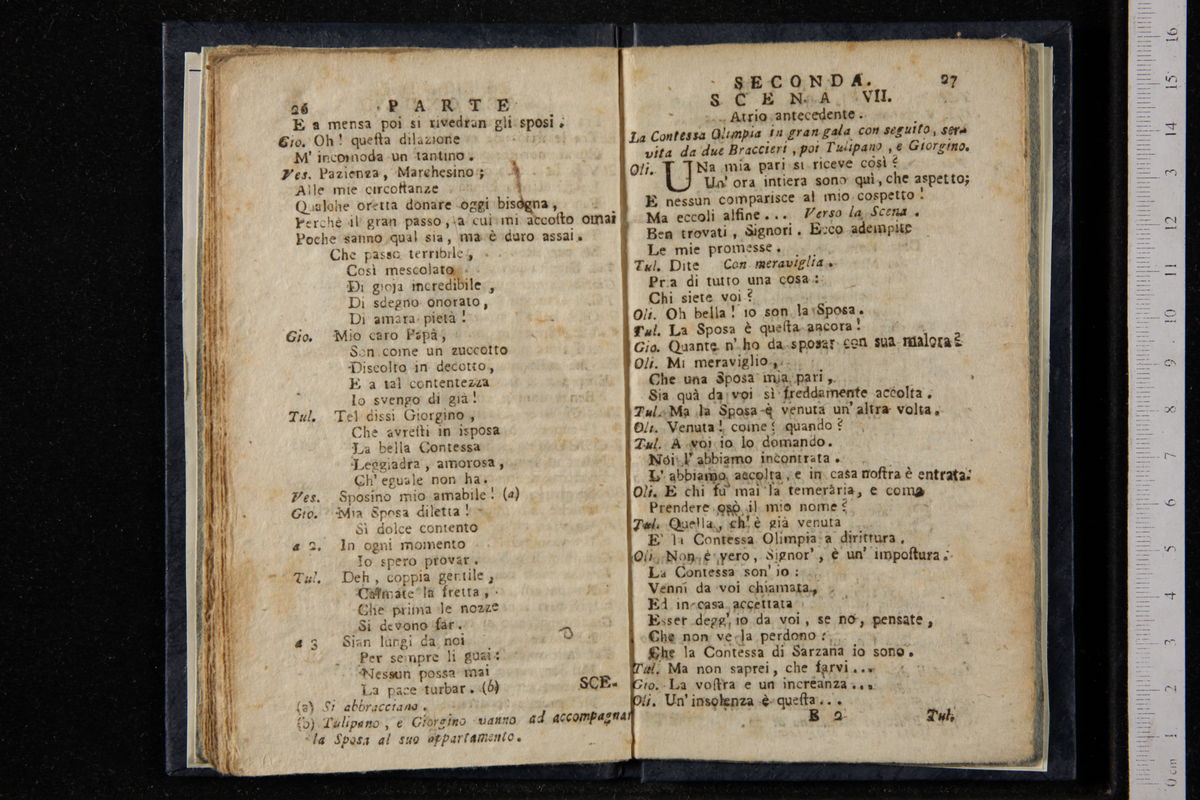 26 PARTE
E a mensa poi si rivedran gli sposi.
Gio. Oh! questa dilazione
M' incomoda un tantino.
Ves. Pazienza, Marchesino;
Alle mie circostanze
Qualche oretta donare oggi bisogna,
Perchè il gran passo, a cui mi accosto omai
Poche sanno qual sia, ma è duro assai.
Che passo terribile,
Così mescolato
Di gioja incredibile,
Di sdegno onorato,
Di amara pietà!
Gio. Mio caro Papà,
Son come un zuccotto
Discolto in decotto,
E a tal contentezza
Io svengo di già!
Tul. Tel dissi Giorgino,
Che avresti in isposa
La bella Contessa
Leggiadra, amorosa,
Ch' eguale non ha.
Ves. Sposino mio amabile! (a)
Gio. Mia Sposa diletta!
Sì dolce contento
a 2. In ogni momento
Io spero provar.
Tul. Deh, coppia gentile,
Calmate la fretta,
Che prima le nozze
Si devono far.
a 3 Sian lungi da noi
Per sempre li guai:
Nessun possa mai
La pace turbar. (b)
SCE-
(a) Si abbracciano.
(b) Tulipano, e Giorgino vanno ad accompagnar
la Sposa al suo appartamento.
SECONDA. 27
SCENA VII.
Atrio antecedente.
La Contessa Olimpia in gran gala con seguito, ser-
vita da due Braccieri, poi Tulipano, e Giorgino.
Oli. UNa mia pari si riceve così?
Un' ora intiera sono quì, che aspetto;
E nessun comparisce al mio cospetto!
Ma eccoli alfine... Verso la Scena.
Ben trovati, Signori. Ecco adempite
Le mie promesse.
Tul. Dite Con meraviglia.
Pria di tutto una cosa:
Chi siete voi?
Oli. Oh bella! io son la Sposa.
Tul. La Sposa è questa ancora!
Gio. Quante n' ho da sposar con sua malora?
Oli. Mi meraviglio,
Che una Sposa mia pari,
Sia quà da voi sì freddamente accolta.
Tul. Ma la Sposa è venuta un' altra volta.
Oli. Venuta! come? quando?
Tul. A voi io lo domando.
Noi l' abbiamo incontrata.
L' abbiamo accolta, e in casa nostra è entrata.
Oli. E chi fu mai la temeraria, e come
Prendere osò il mio nome?
Tul. Quella, ch' è già venuta
E' la Contessa Olimpia a dirittura.
Oli. Non è vero, Signor', è un' impostura.
La Contessa son' io:
Venni da voi chiamata,
Ed in casa accettata
Esser degg' io da voi, se no, pensate,
Che non ve la perdono:
Che la Contessa di Sarzana io sono.
Tul. Ma non saprei, che farvi...
Gio. La vostra e un increanza...
Oli. Un' insolenza è questa...
B 2 Tul.